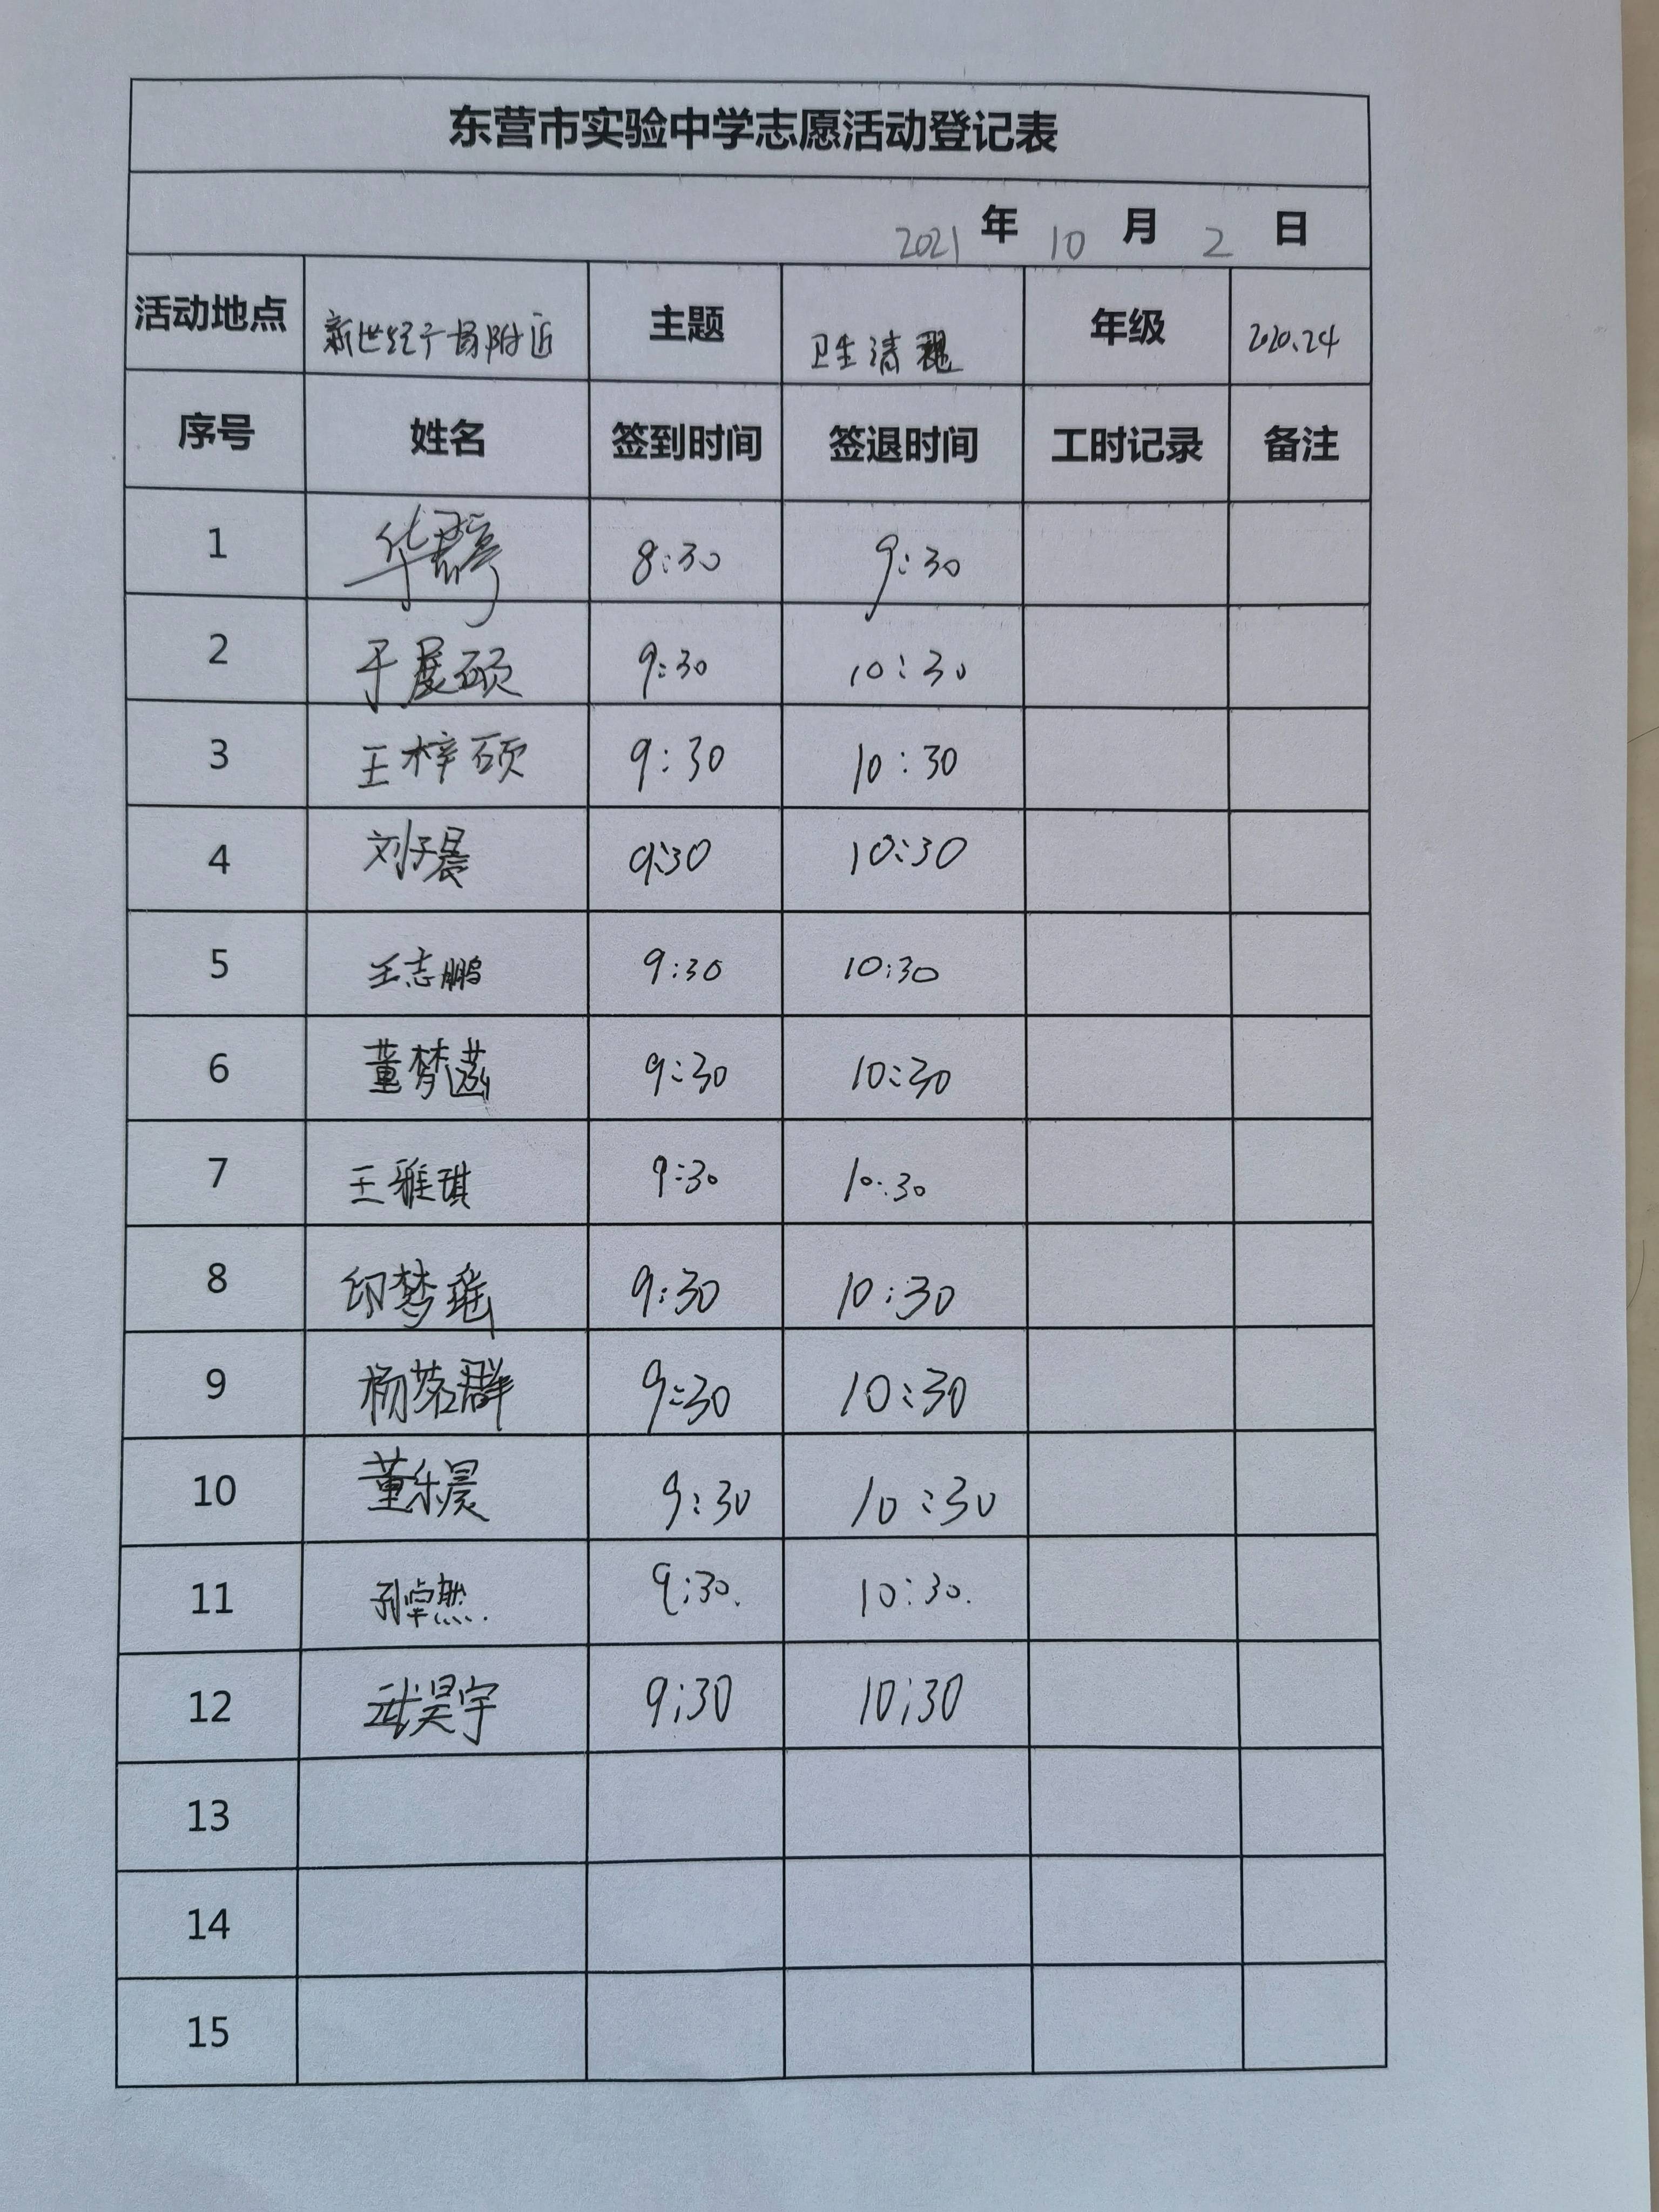 东营市实验中学志愿活动登记表
2021 年 10 月 2 日
活动地点 新世纪广场附近 主题 卫生清理 年级 2020.24
序号 姓名 签到时间 签退时间 工时记录 备注
1 华 8:30 9:30
2 于展硕 9:30 10:30
3 王梓硕 9:30 10:30
4 刘子晨 9:30 10:30
5 王志鹏 9:30 10:30
6 董梦涵 9:30 10:30
7 王雅琪 9:30 10:30
8 印梦瑶 9:30 10:30
9 杨茗群 9:30 10:30
10 董乐晨 9:30 10:30
11 孙卓然. 9:30. 10:30.
12 武昊宇 9:30 10:30
13
14
15